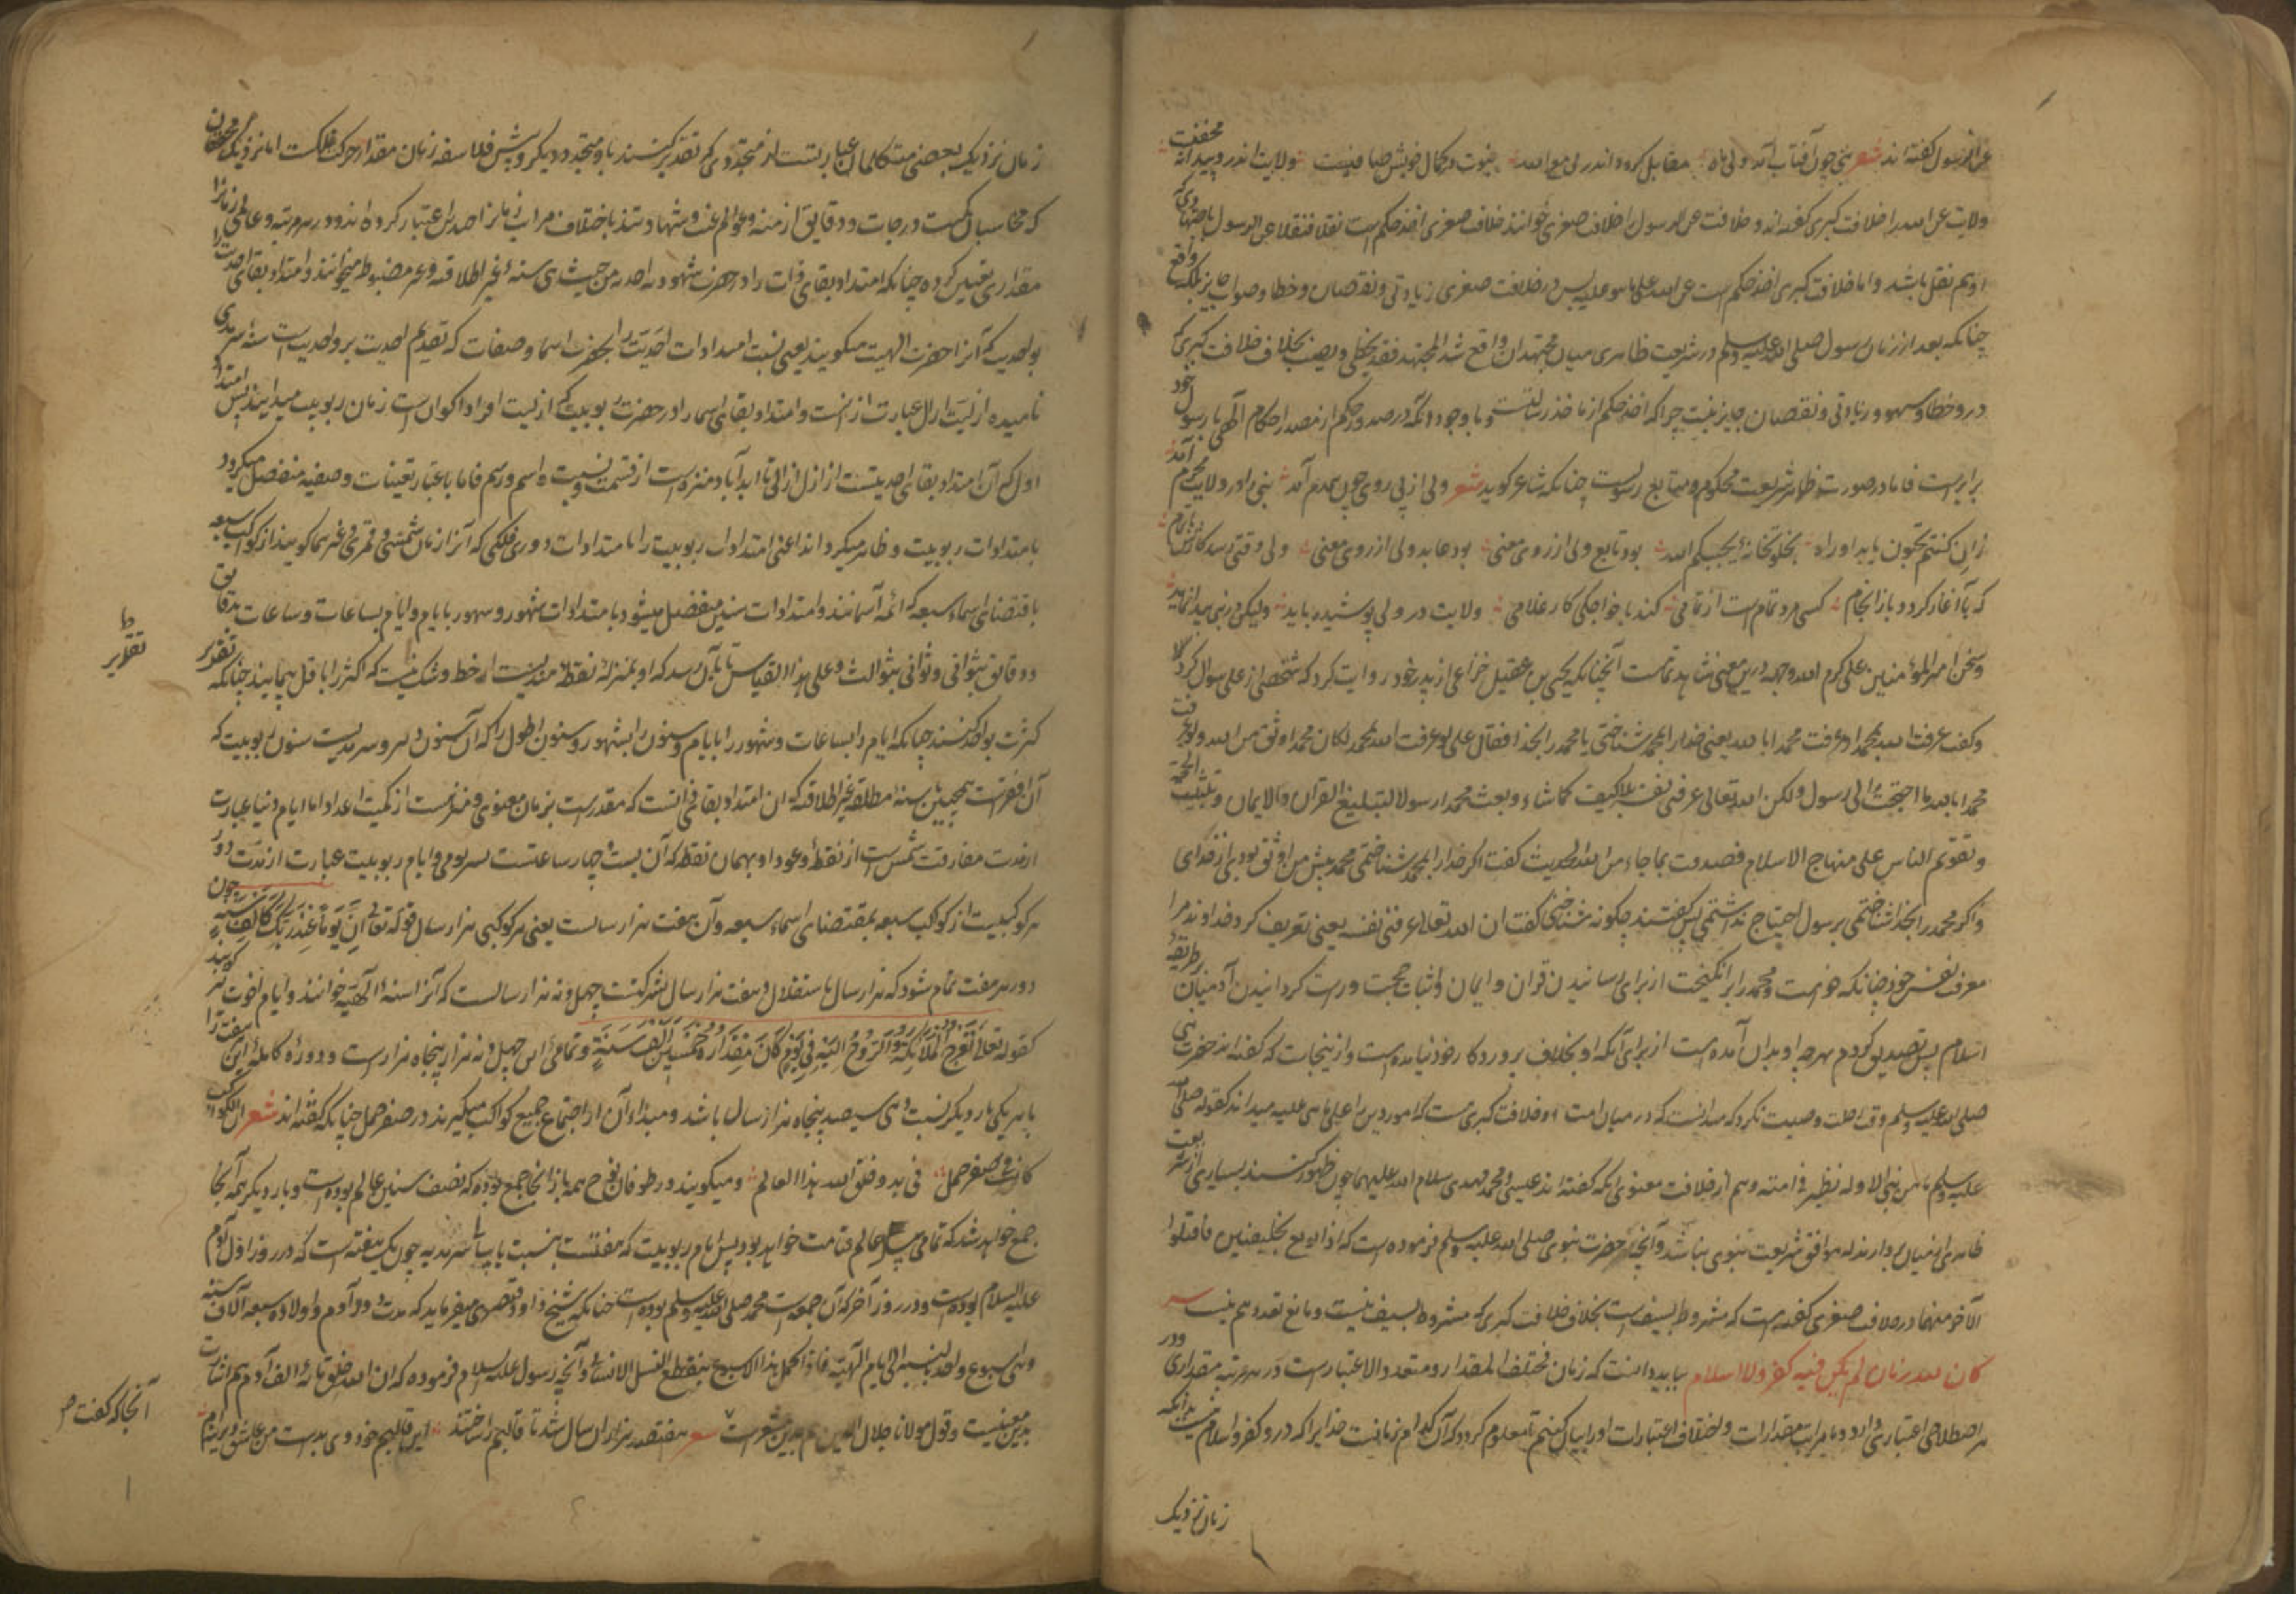 عن الرسول گفته‌اند شعر نبی چون آفتاب آمد ولی ماه مقابل گردد اندر لی مع الله نبوت در کمال خویش صافیست ولایت اندرو پیدا نه مخفیست
ولایت عن الله را خلافت کبری گفته‌اند و خلافت عن الرسول را خلافت صغری خوانند خلافت صغری اخذ حکم است نقلا فنقلا عن الرسول یا اجتهادی که
او هم نقل باشد و اما خلافت کبری اخذ حکم است عن الله علی ما هو علیه پس در خلافت صغری زیادتی و نقصان و خطا و صواب جایز بلکه واقع
چنانکه بعد از زمان رسول صلی الله علیه وسلم در شریعت ظاهری میان مجتهدان واقع شد المجتهد قد یخطی و یصیب بخلاف خلافت کبری که
درو خطا و سهو و زیادتی و نقصان جایز نیست چرا که اخذ حکم از ماخذ رسالتست و با وجود آنکه در صدور حکم از مصدر احکام الهی با رسول خود
برابر است فاما در صورت ظاهر شریعت محکوم و متابع رسولست چنانکه شاعر گوید شعر ولی از پی روی چون همدم آمد نبی را در ولایت محرم آمد
ز ان کنتم تحبون یابد او راه بخلوتخانه یحببکم الله بود تابع ولی از روی معنی بود عابد ولی از روی معنی ولی وقتی رسد کارش باتمام
که با آغاز گردد باز انجام کسی مرد تمام است از تمامی کند با خواجگی کار غلامی ولایت در ولی پوشیده باید ولیکن در نبی پیدا نماید
و سخن امیر المؤمنین علی کرم الله وجهه درین معنی شاهد تمامست آنچنانکه یحیی بن عقیل خزاعی از پدر خود روایت کرد که شخصی از علی سوال کرد
و گفت عرفت الله بمحمد او عرفت محمدا بالله یعنی خدا را بمحمد شناختی یا محمد را بخدا فقال علی لو عرفت الله بمحمد لکان محمد اوثق من الله ولو عرفت
محمدا بالله ما احتجت الی رسول ولکن الله تعالی عرفنی نفسه بلا کیف کما شاء و بعث محمدا رسولا لتبلیغ القرآن والایمان و تثبیت الحجة
و تقویم الناس علی منهاج الاسلام فصدقت بما جاء من الله الحدیث گفت اگر خدا را بمحمد شناختمی محمد پیش من اوثق بودی از خدای
و اگر محمد را بخدا شناختمی برسول احتیاج نداشتمی پس گفتند چگونه شناختی گفت ان الله تعالی عرفنی نفسه یعنی تعریف کرد خداوند مرا
معرفت نفس خود چنانکه خواست و محمد را برانگیخت از برای رسانیدن قرآن و ایمان و اثبات حجت و راست گردانیدن آدمیان بر طریقه
اسلام پس تصدیق کردم بهرچه او بدان آمده است از برای آنکه او بخلاف پروردگار خود نیامده است و ازینجاست که گفته‌اند حضرت
صلی الله علیه وسلم وقت رحلت وصیت نکرد که میدانست که در میان امت او خلافت کبری هست که امور دین را علی ما هی علیه میداند کقوله صلی الله
علیه وسلم ما من نبی الا وله نظیر فی امته و هم از خلافت معنوی آنکه گفته‌اند عیسی و محمد مهدی سلام الله علیهما چون ظهور کنند بسیاری از شریعت
ظاهری از میان بردارند که موافق شریعت نبوی نباشد و آنچه حضرت نبوی صلی الله علیه وسلم فرموده است که اذا بویع بخلیفتین فاقتلوا
الآخر منهما در خلافت صغری گفته است که مشروط بسیف است بخلاف خلافت کبری که مشروط بسیف نیست و مانع تعدد هم نیست
کان لله زمان لم یکن فیه کفر ولا اسلام بباید دانست که زمان مختلف المقدار و متعدد الاعتبار است در هر مرتبه مقداری و در
هر اصطلاحی اعتباری دارد و تا مراتب مقدارات و اختلاف اعتبارات او را بیان نکنیم تا معلوم گردد که آن کدام زمانست خدایرا که درو کفر و اسلام نیست بدانکه
زمان نزدیک
زمان نزدیک بعضی متکلمان عبارتست از متجددی که تقدیر کنند باو متجدد دیگر و پیش فلاسفه زمان مقدار حرکت فلکست اما نزدیک محققان
که محاسبان درجات و دقایق ازمنه و عوالم غیب و شهادتند باختلاف مراتب زمانرا اعتبار کرده‌اند و در هر مرتبه و عالمی زمانرا
مقداری تعیین کرده چنانکه امتداد بقای ذات را در حضرت شهود من حیث هی سنه غیر اطلاقیه و غیر مضبوط میخوانند و امتداد بقای احدیت را
بواحدیت که آنرا حضرت الهیت میگویند یعنی نسبت امتدادات احدیت را بحضرت اسما و صفات که تقدیم احدیت بر واحدیت است سنه سرمدی
نامیده ازلیت ازل عبارت از آنست و امتداد بقای اسما را در حضرت ربوبیت که ازلیت افراد اکوان است زمان ربوبیت میدانند پس امتداد
اول که آن امتداد بقای احدیتست از ازل آزال تا ابد آباد منزه است از قسمت و نسبت و اسم و رسم فاما باعتبار تعینات وصفیه منفصل میگردد
بامتدادات ربوبیت و ظاهر میگرداند اعنی امتدادات ربوبیت را امتدادات دوری فلکی که آنرا زمان شمسی و قمری و غیرهما گویند از کواکب سبعه
باقتضای اسماء سبعه که ائمه اسمااند و امتدادات سنین منفصل میشود بامتدادات شهور و شهور بایام و ایام بساعات و ساعات بدقایق
و دقایق بثوانی و ثوانی بثوالث و علی هذا القیاس تا بآن رسد که او بمنزله نقطه است از خط و شک نیست که اکثر را باقل پیمایند چنانکه تقدیر
کثرت بواحد کنند چنانکه ایام را بساعات و شهور را بایام و سنون را بشهور و سنون اطول را که آن سنون دهر و سرمدیست بسنون ربوبیت که
آن اقصر است همچنین تا سنه مطلقه غیر اطلاقیه که آن امتداد بقای ذاتست که مقدر است بزمان معنوی و منزه است از کمیت اعداد اما ایام دنیا عبارت
از مدت مفارقت شمس است از نقطه و عود او بهمان نقطه که آن بیست و چهار ساعتست بسر یومی و ایام ربوبیت عبارت از مدت دور
هر کوکبیست از کواکب سبعه بمقتضای اسماء سبعه و آن هفت هزار سالست یعنی هر کوکبی هزار سال قوله تعالی ان یوما عند ربک کالف سنة چون
دور هر هفت تمام شود که هزار سال باستقلال و هفت هزار سال بشرکت چهل و نه هزار سالست که آنرا سنه الهیه خوانند و ایام آخرت نیز گویند
کقوله تعالی تعرج الملائکة والروح الیه فی یوم کان مقداره خمسین الف سنة و تمامی این چهل و نه هزار پنجاه هزار است و دوره کامله این هفت را
با هر یکی بار دیگر نسبت دهی سیصد پنجاه هزار سال باشد و مبداء آن از اجتماع جمیع کواکب میگیرند در صفر حمل چنانکه گفته‌اند شعر ان الکواکب
کانت بصفر حمل فی بدو خلق الله هذا العالم و میگویند در طوفان نوح همه باز آنجا جمع بوده که نصف سنین عالم بوده است و بار دیگر همه آنجا
جمع خواهد شد که تمامی عالم قیامت خواهد بود پس ایام ربوبیت که هفتست بنسبت با سرمدیه چون یک هفته است که در روز اول آدم
علیه السلام بوده است و در روز آخر که آن جمعه است محمد صلی الله علیه وسلم بوده است چنانکه شیخ داود قیصری میفرماید که مدت دور آدم و اولاده سبعه آلاف سنة
و هی اسبوع واحد بالنسبة الی ایام الهیة فاذا کمل هذا الاسبوع ینقطع النسل الانسانی و آنچه رسول علیه السلام فرموده که ان الله خلق مائة الف آدم هم اشارت
بدین معنیست و قول مولانا جلال الدین هم بدین مشعر است شعر هفتصد هزاران سال شد تا قالبم را ساختند این قالبم خود وی بدست من عاشق دیرینه‌ام
تقدیر
آنجا که گفت